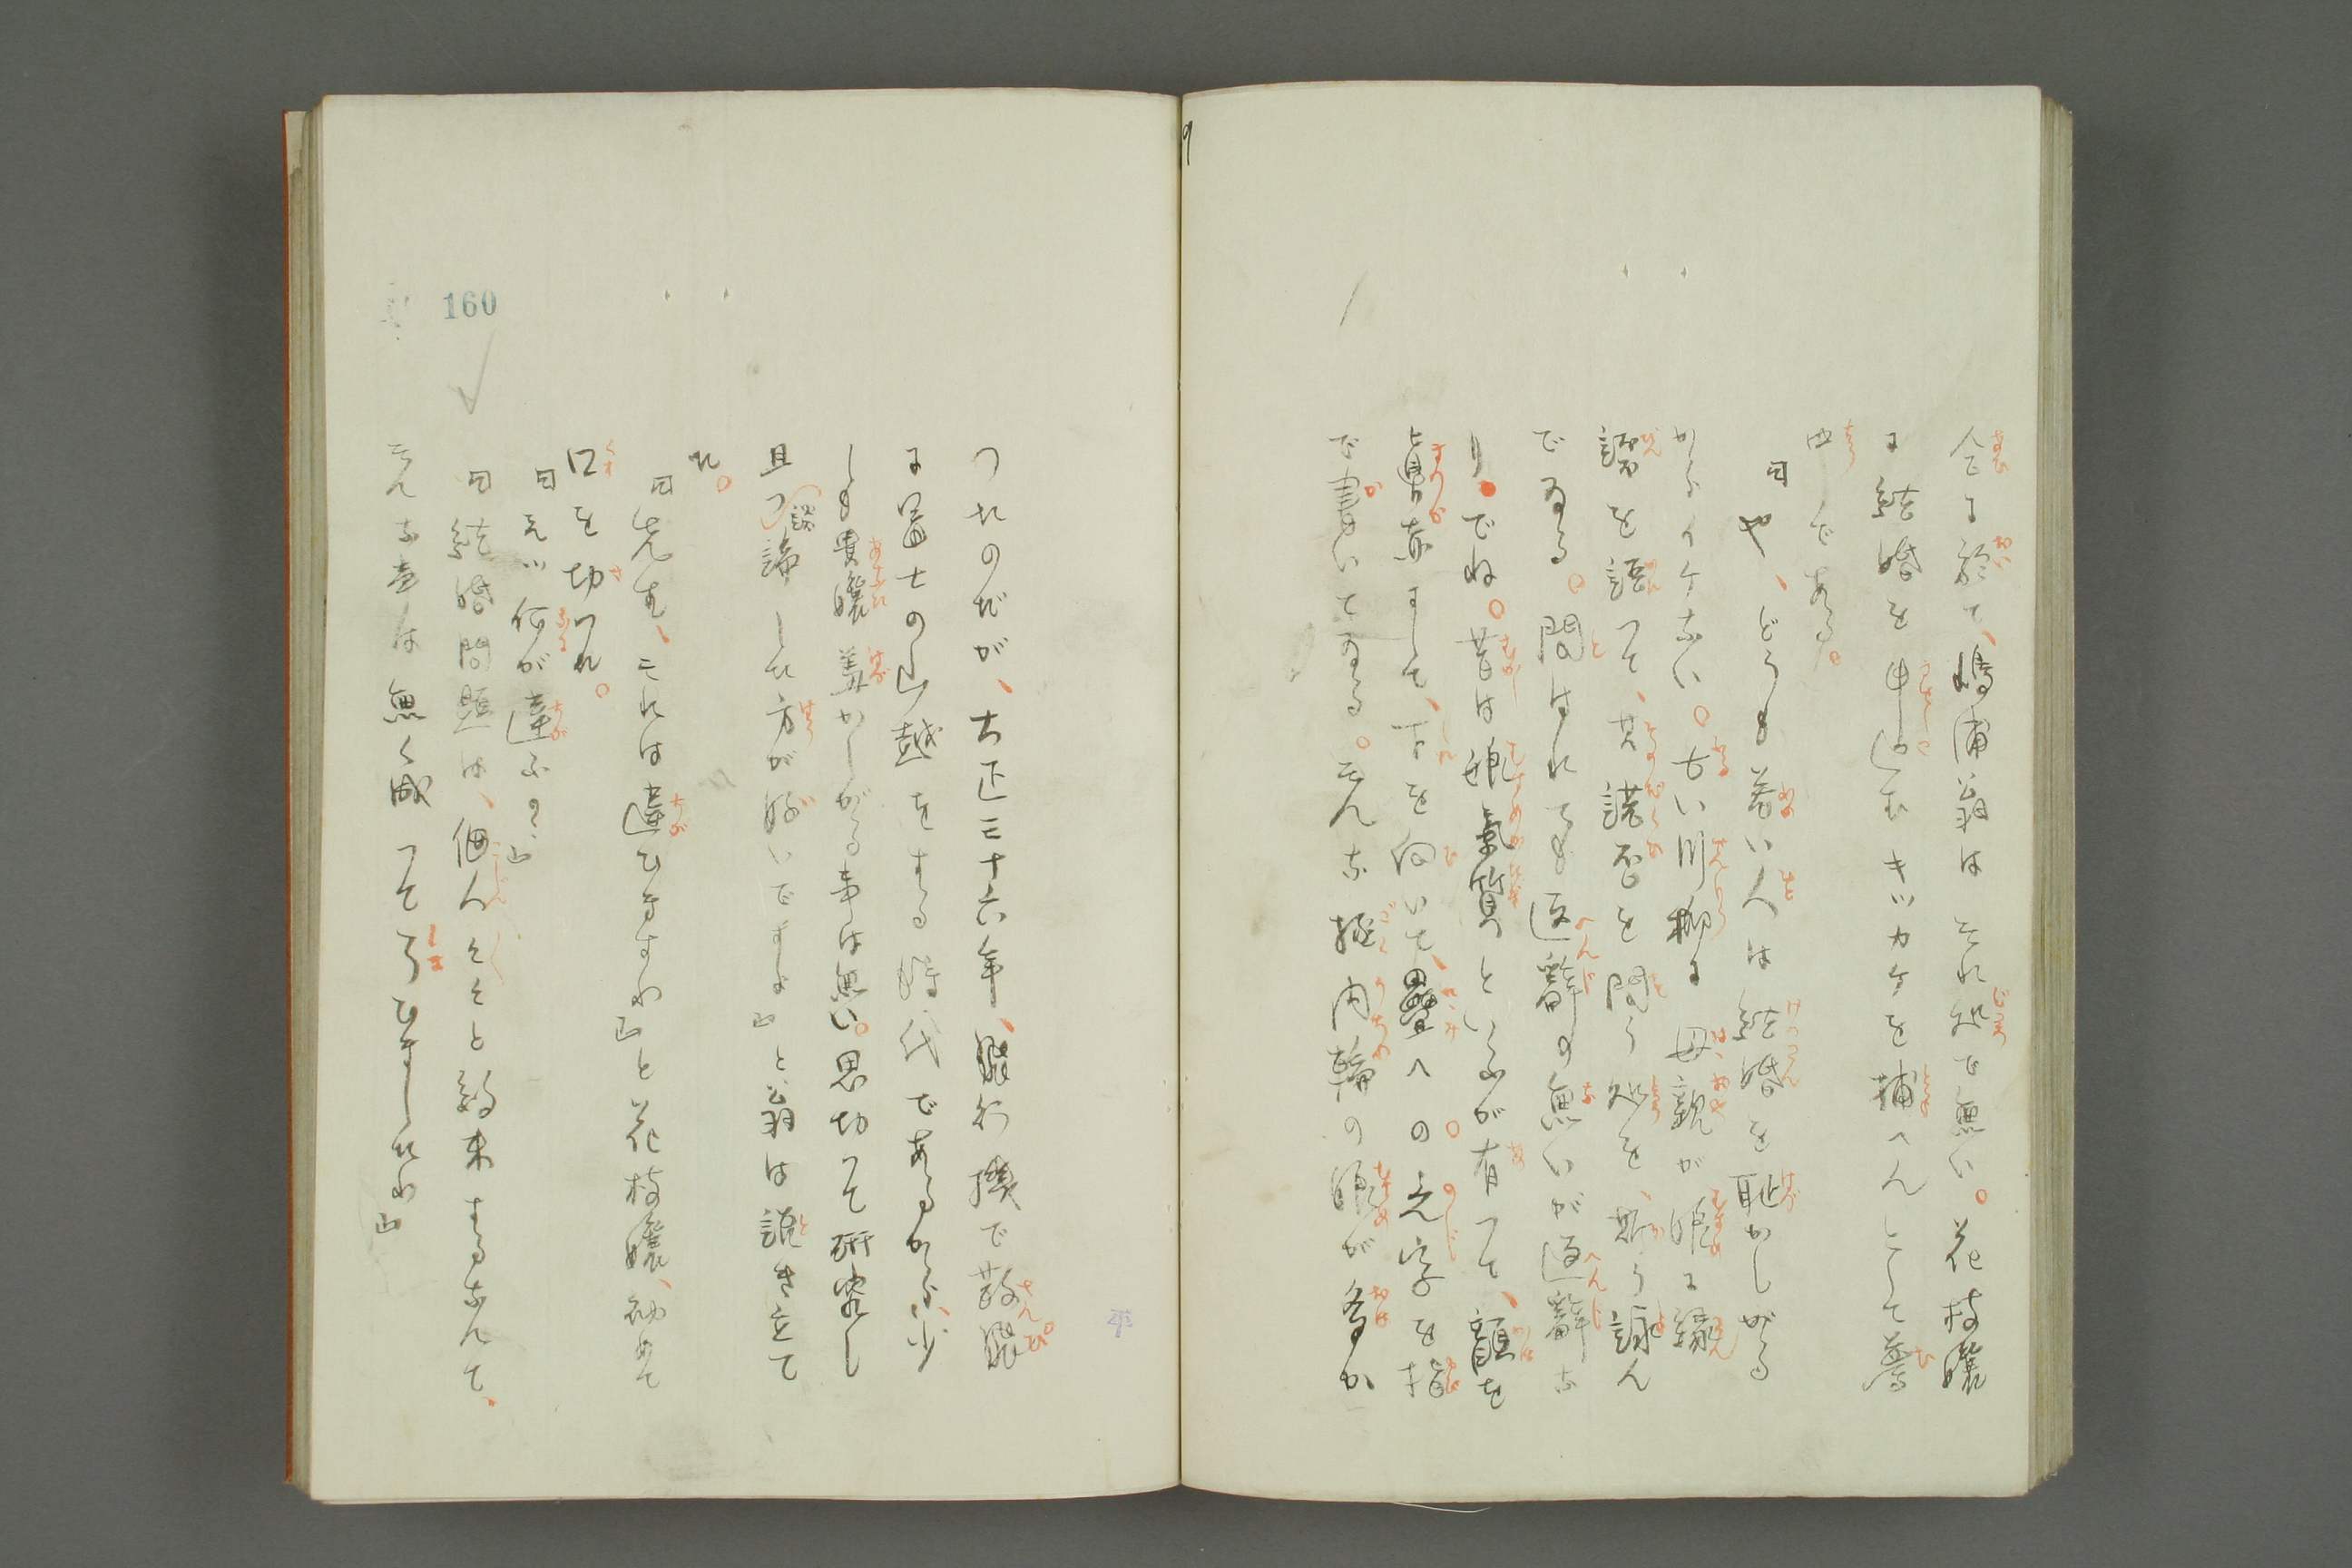 合に於て、嶋浦翁は それ処で無い。花枝嬢
に結婚を申込むキッカケを捕へんとして夢
中である。
「や、どうも若い人は結婚を恥かしがる
からイケない。古い川柳に 母親が娘に縁
談を語つて、其諾否を問う処を、斯う詠ん
である。問はれても返辞の無いが返辞な
り。でね。昔は娘気質といふが有つて、顔を
真赤にして、下を向いて、畳へのの字を指
で書いてゐる。そんな極内輪の娘が多か
つたのだが、大正三十六年、飛行機で散飛
に富士の山越をする時代であるから、少
しも貴嬢 羞かしがる事は無い。思切つて研究し
且つ談諦した方が好いですよ」と、翁は説き立て
た。
「先生、それは違ひますわ」と花枝嬢、初めて
口を切つた。
「え、何が違ふね」
「結婚問題は、個人々々と約束するなんて、
そんな事は無く成つて了ひましたわ」
160